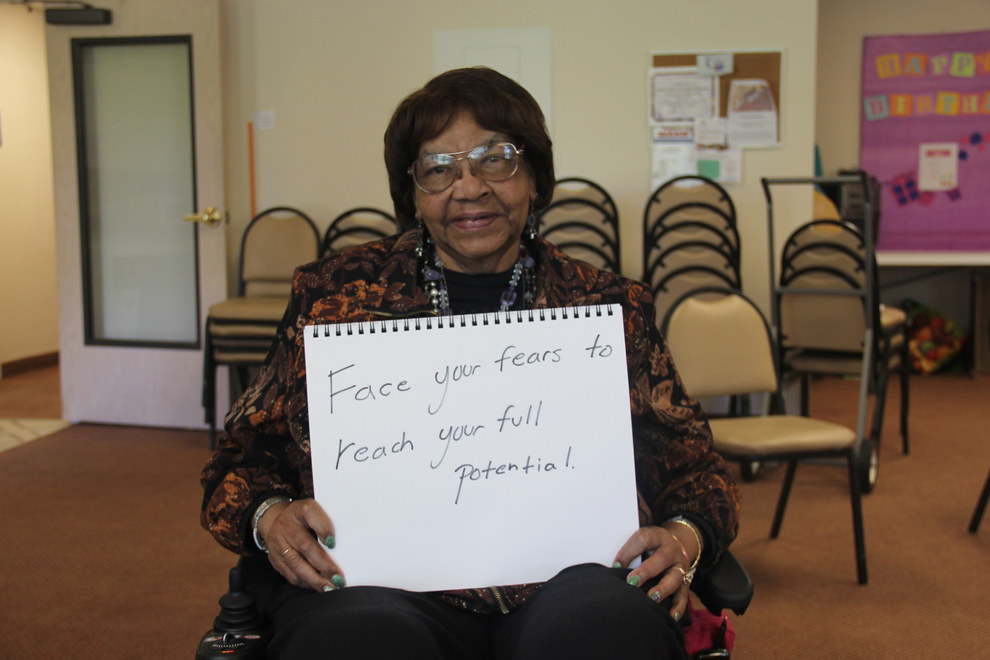 Face your fears to
reach your full
potential.
HAPPY
BIRTH